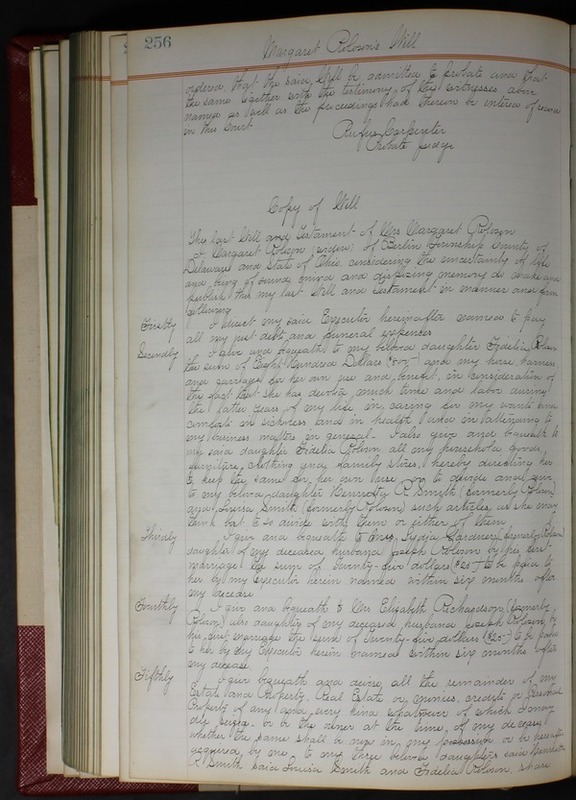 256
Margaret Roloson's Will
ordered, that the said Will be admitted to probate and that
the same together with the testimony of the witnesses above
named as well as the proceedings had therein be entered of record
in this Court
Rufus Carpenter
Probate Judge
Copy of Will
The last Will and Testament of Mrs Margaret Roloson
I Margaret Roloson (widow) of Berlin Township County of
Delaware and State of Ohio, considering the uncertainty of life
and being of sound mind and disposing memory do make and
publish this my last Will and Testament in manner and form
following
Firstly I direct my said Executor hereinafter named to pay
all my just debts and funeral expenses
Secondly I give and bequeath to my beloved daughter Fidelia Roloson
the sum of Eight Hundred Dollars ($800-) and my horse, harness
and carriage for her own use and benefit, in consideration of
the fact that she has devoted much time and labor during
the latter years of my life in caring for my wants and
comforts in sickness and in health and in attending to
my business matters in general. I also give and bequeath to
my said daughter Fidelia Roloson all my household goods,
furniture, clothing and family stores, hereby directing her
to keep the same for her own use or to divide and give
to my beloved daughter R. Smith (formerly Roloson)
and Louisa Smith (formerly Roloson) such articles, as she may
think best to so divide with them or either of them
Thirdly I give and bequeath to Mrs Lydia Gardner (formerly Roloson)
daughter of my deceased husband Joseph Roloson by his first
marriage the sum of Twenty-five dollars ($25-) to be paid to
her by my Executor herein named within six months after
my decease
Fourthly I give and bequeath to Mrs Elizabeth Richardson (formerly
Roloson) also daughter of my deceased husband Joseph Roloson by
his first marriage the sum of Twenty-five dollars ($25-) to be paid
to her by my Executor herein named within six months after
my decease
Fifthly I give bequeath and devise, all the remainder of my
Estate and Property, Real Estate or monies, credits or Personal
Property of any and every kind whatsoever of which I may
die seized, or be the owner at the time, of my decease,
whether the same shall be now in my possession or be hereafter
acquired, by me, to my three beloved daughters said
R. Smith said Louisa Smith and Fidelia Roloson, share